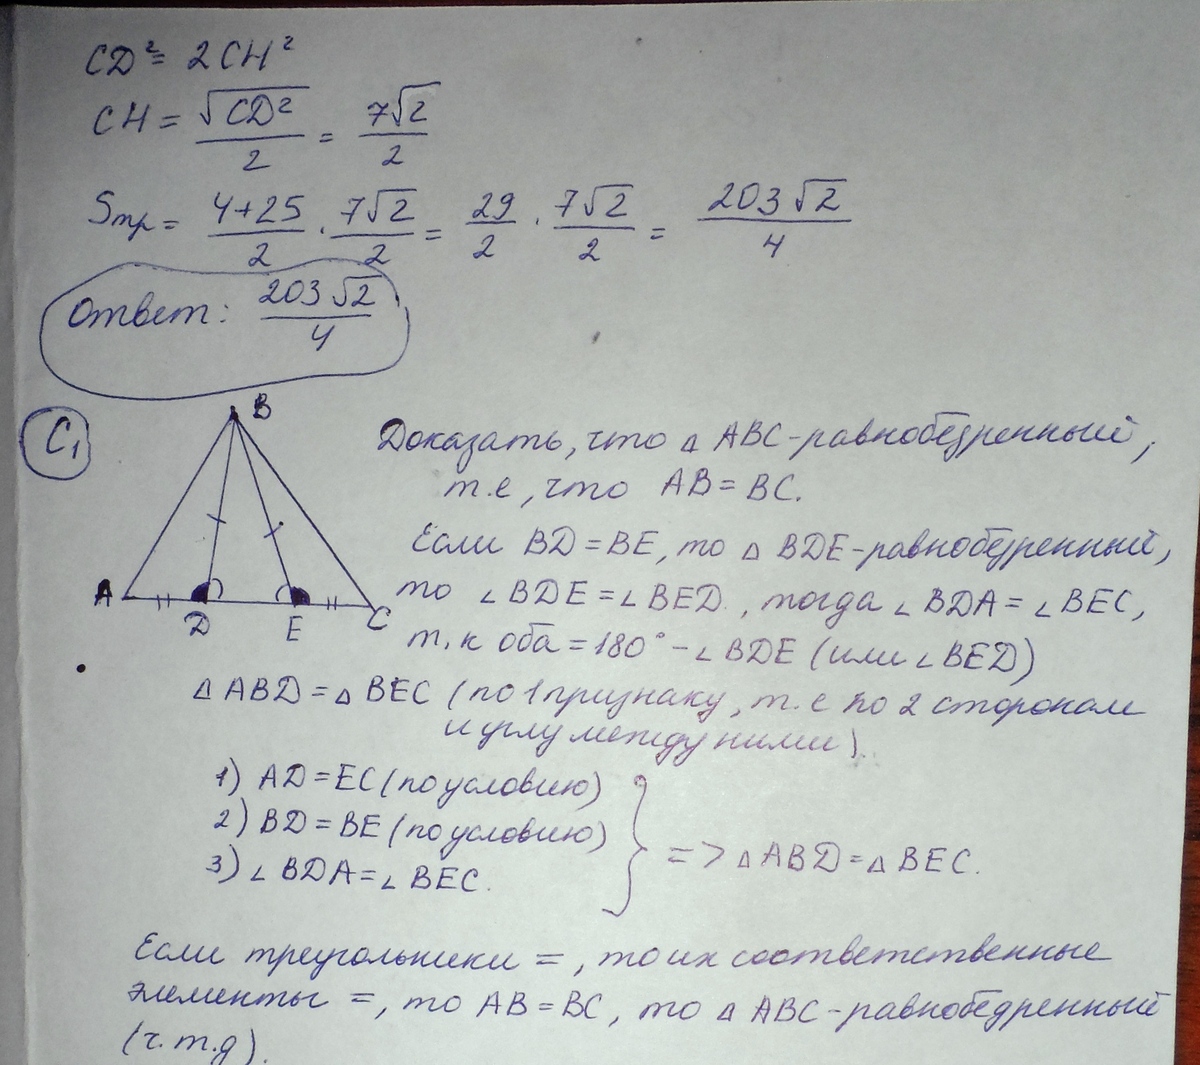 CD² = 2CH²
CH = √CD²/2 = 7√2/2
Sтр = 4+25/2 · 7√2/2 = 29/2 · 7√2/2 = 203√2/4
Ответ: 203√2/4
C₁
B
A
D
E
C
Доказать, что △ ABC-равнобедренный,
т.е, что AB = BC.
Если BD = BE, то △ BDE-равнобедренный,
то ∠BDE = ∠BED, тогда ∠BDA = ∠BEC,
т.к оба = 180° - ∠BDE (или ∠BED)
△ ABD = △ BEC (по 1 признаку, т.е по 2 сторонам
и углу между ними).
1) AD = EC (по условию)
2) BD = BE (по условию)
3) ∠BDA = ∠BEC.
=> △ABD = △BEC.
Если треугольники =, то их соответственные
элементы =, то AB = BC, то △ ABC-равнобедренный
(ч.т.д).